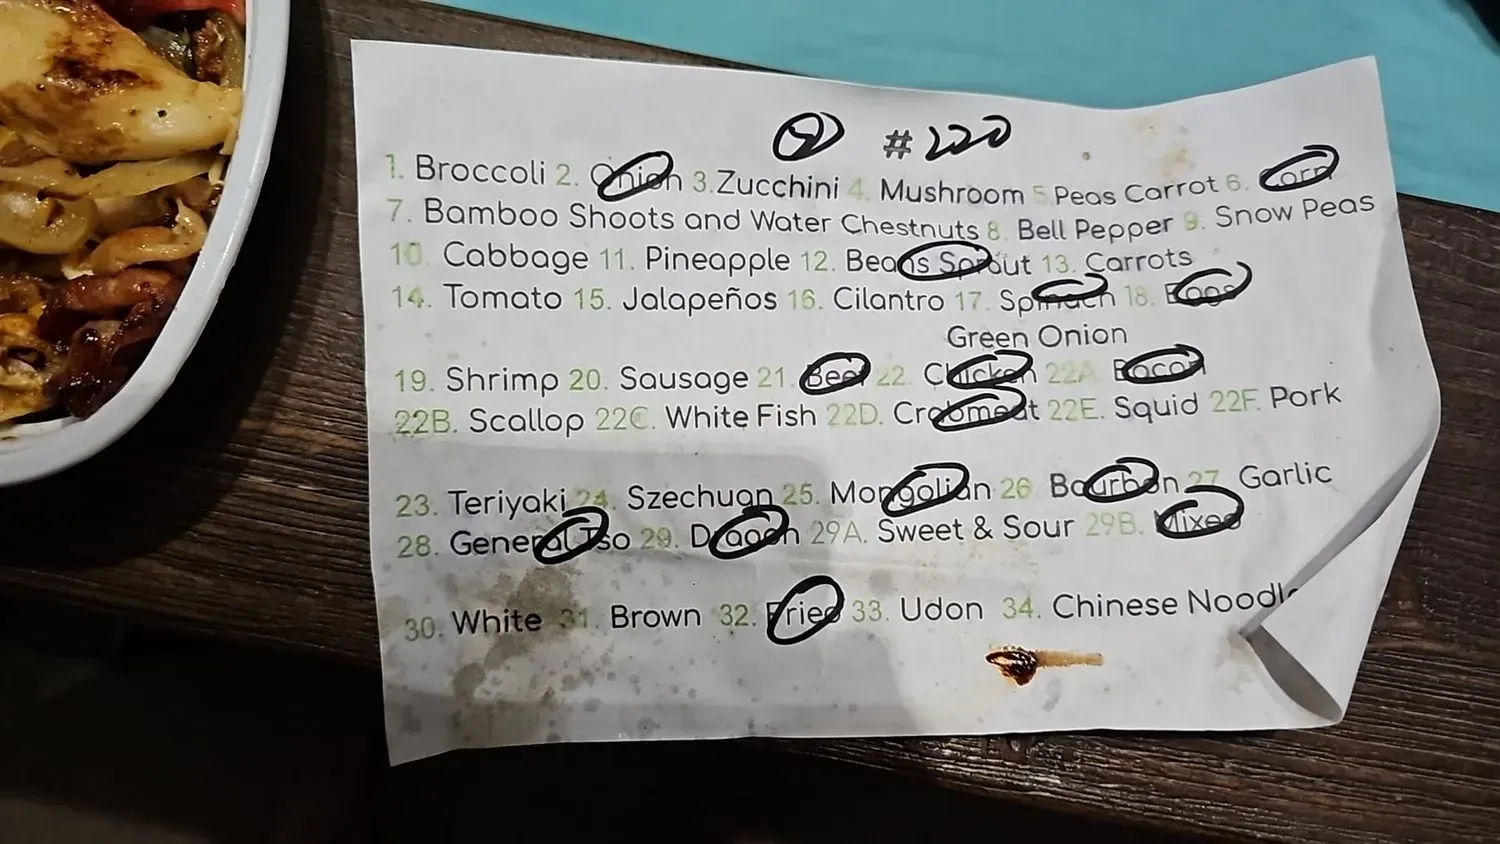 #220
1. Broccoli 2. Onion 3.Zucchini 4. Mushroom 5.Peas Carrot 6. Corn
7. Bamboo Shoots and Water Chestnuts 8. Bell Pepper 9. Snow Peas
10. Cabbage 11. Pineapple 12. Beans Sprout 13. Carrots
14. Tomato 15. Jalapeños 16. Cilantro 17. Spinach 18. Eggs
Green Onion
19. Shrimp 20. Sausage 21. Beef 22. Chicken 22A Bacon
22B. Scallop 22C. White Fish 22D. Crabmeat 22E. Squid 22F. Pork
23. Teriyaki 24. Szechuan 25. Mongolian 26 Bourbon 27. Garlic
28. General Tso 29. Dragon 29A. Sweet & Sour 29B. Mixed
30. White 31. Brown 32. Fried 33. Udon 34. Chinese Noodl